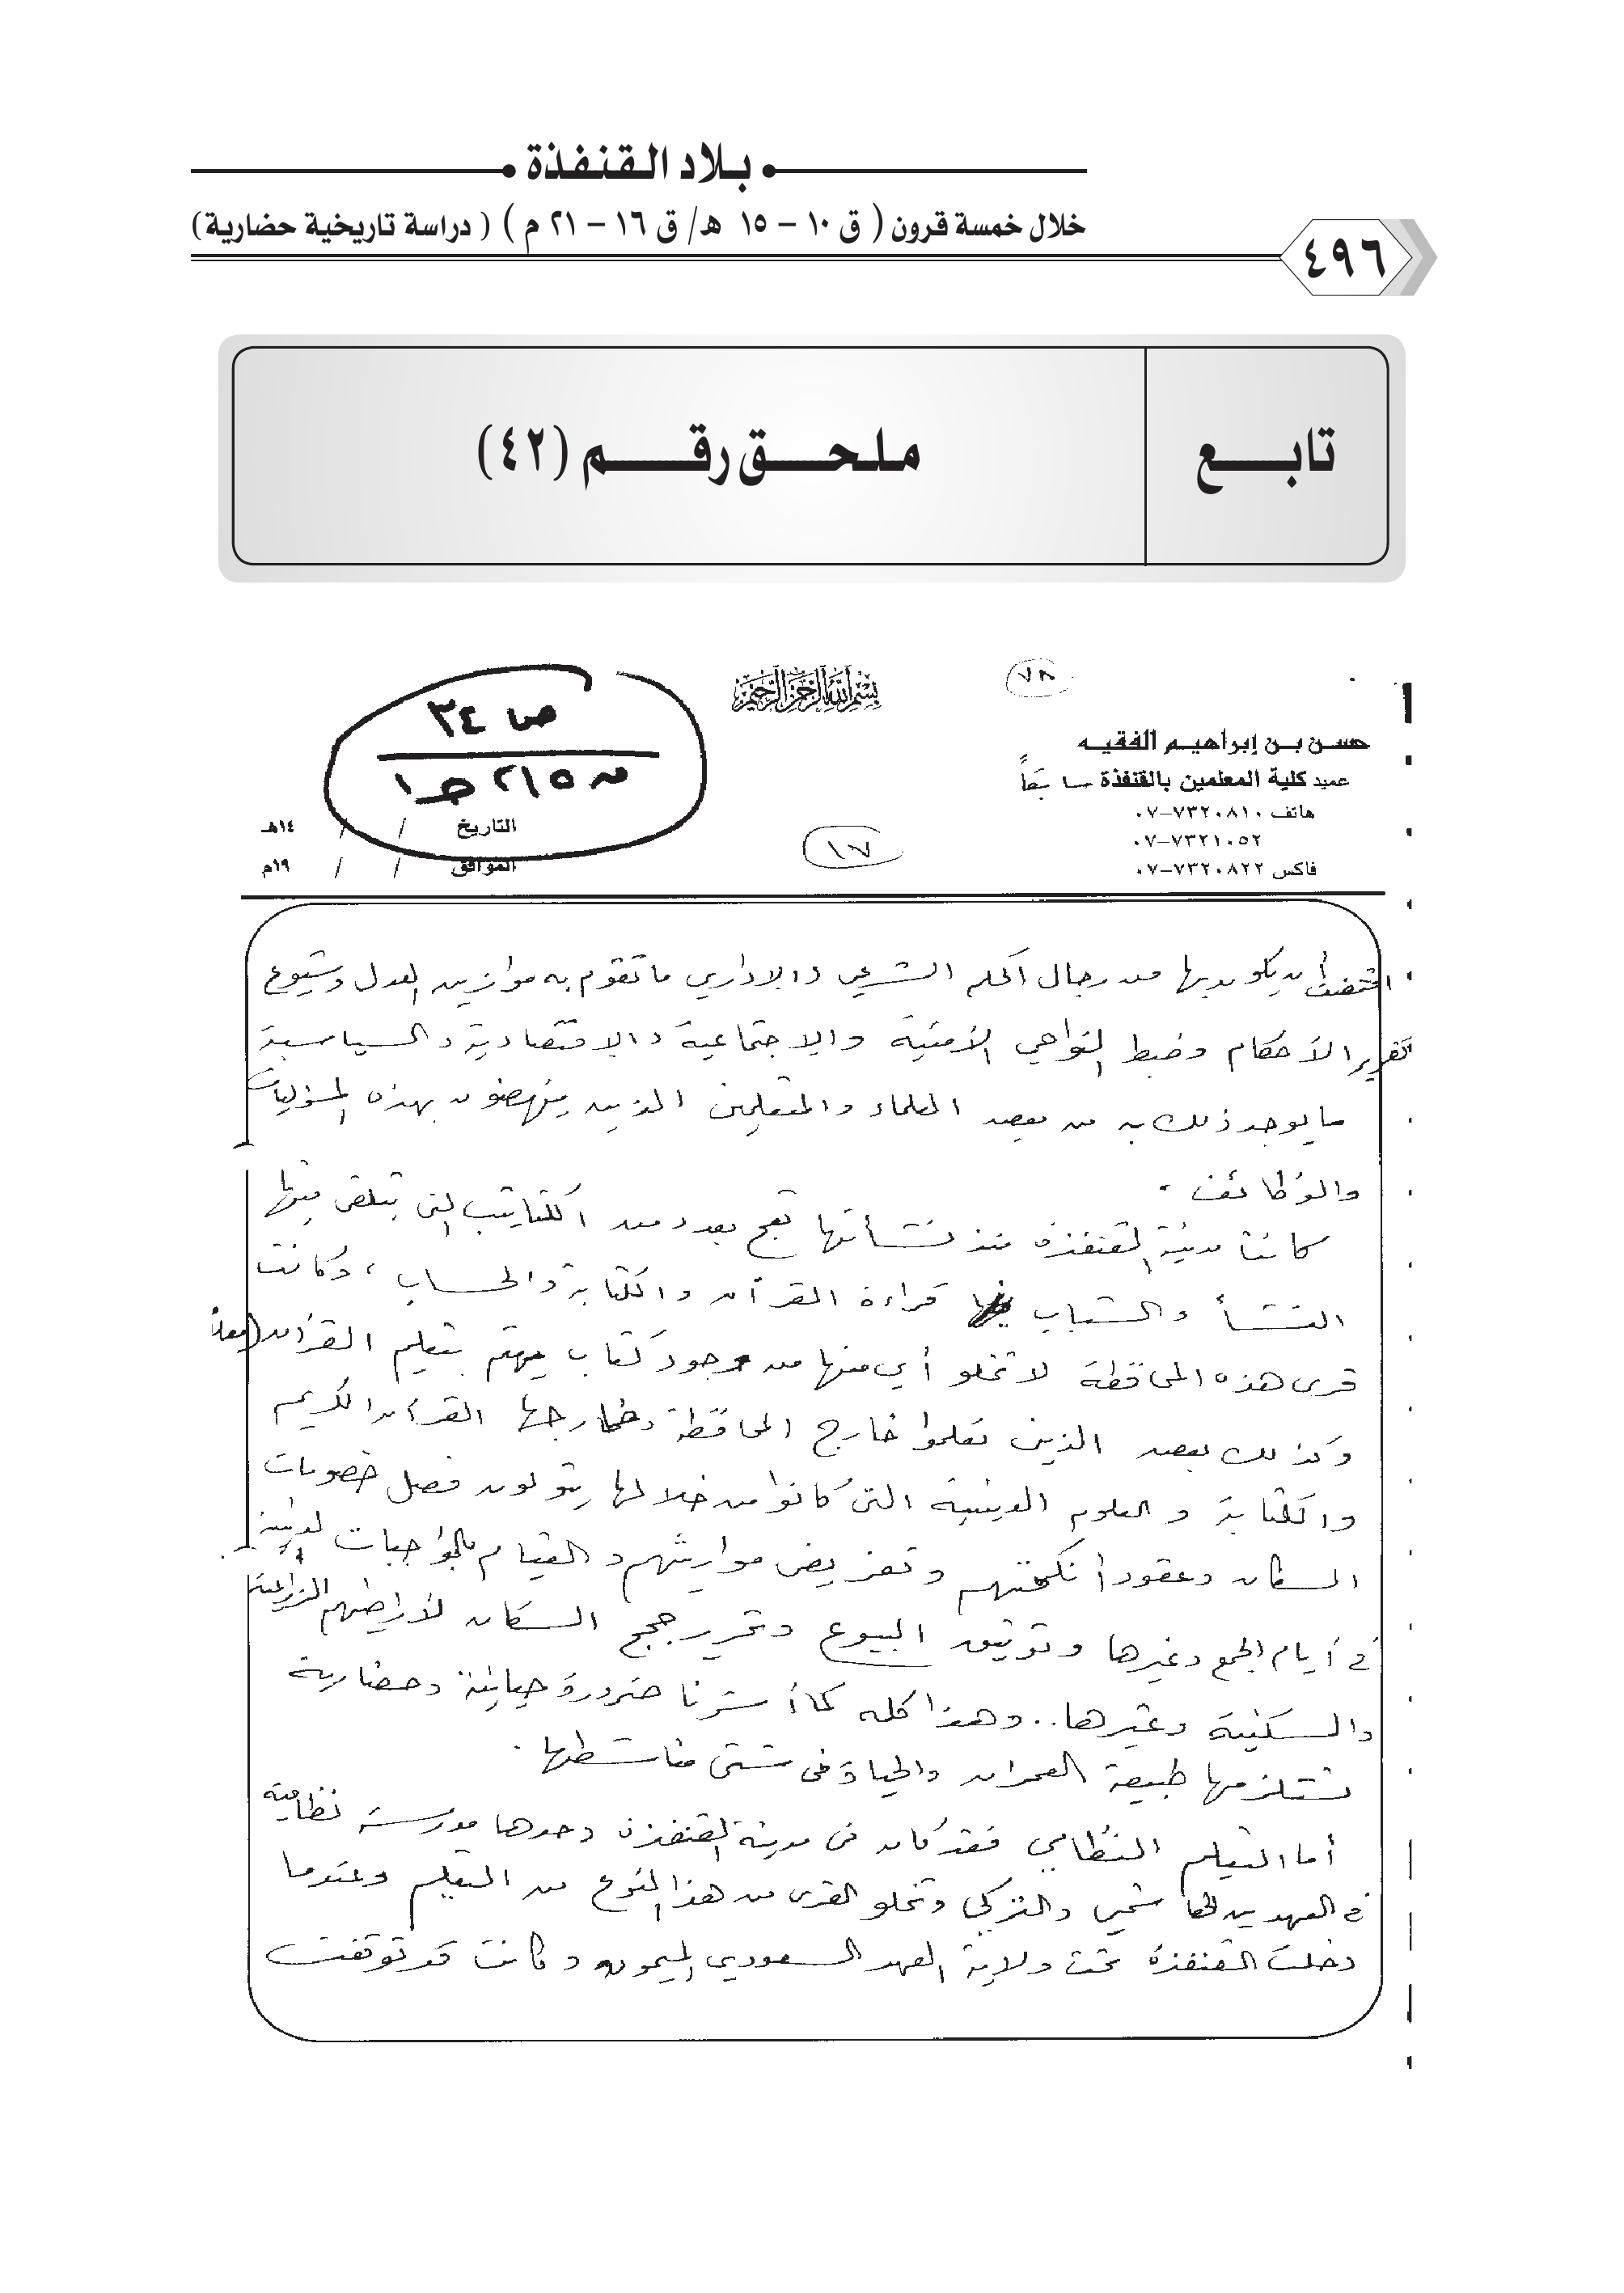 بلاد القنفذة
خلال خمسة قرون ( ق ١٠ – ١٥ هـ/ ق ١٦ – ٢١ م ) ( دراسة تاريخية حضارية)
٤٩٦
تابع
ملحق رقم (٤٢)
بسم الله الرحمن الرحيم
٧٨
ص ٣٤
حسن بن إبراهيم الفقيه
عميد كلية المعلمين بالقنفذة سابقاً
هاتف ٧٣٢٠٨١٠–٠٧
٧٣٢١٠٥٢–٠٧
فاكس ٧٣٢٠٨٢٢–٠٧
١٧
التاريخ / / ١٤هـ
الموافق / / ١٩م
اقتضت أن يكون بها من رجال الحكم الشرعي والإداري ما تقوم به موازين العدل وشيوع
تقرير الأحكام وضبط النواحي الأمنية والاجتماعية والاقتصادية والسياسية
ما يوجد ذلك به من بعض العلماء والمتعلمين الذين ينهضون بهذه المسؤليات
والوظائف .
كانت مدينة القنفذة منذ نشأتها تعج بعدد من الكتاتيب التي يتلقى فيها
النشأ والشباب قراءة القرآن والكتابة والحساب ، وكانت
قرى هذه المحافظة لا تخلو أي منها من وجود كتاب يهتم بتعليم القرآن
وكذلك بعض الذين تعلموا خارج المحافظة وخارجها القرآن الكريم
والكتابة والعلوم الدينية التي كانوا من خلالها يتولون فصل خصومات
السكان وعقود أنكحتهم وتفريض مواريثهم والقيام بالواجبات الدينية
في أيام الجمع وغيرها وتوثيق البيوع وتحرير حجج السكان لأراضيهم الزراعية
والسكنية وغيرها.. وهذا كله كما أشرنا ضرورة حياتية وحضارية
تستلزمها طبيعة العمران والحياة في شتى مناشطها .
أما التعليم النظامي فقد كان في مدينة القنفذة وحدها مدرسة نظامية
في العهدين الهاشمي والتركي وتخلو القرى من هذا النوع من التعليم وعندما
دخلت القنفذة تحت ولاية العهد السعودي الميمون وكانت قد توقفت